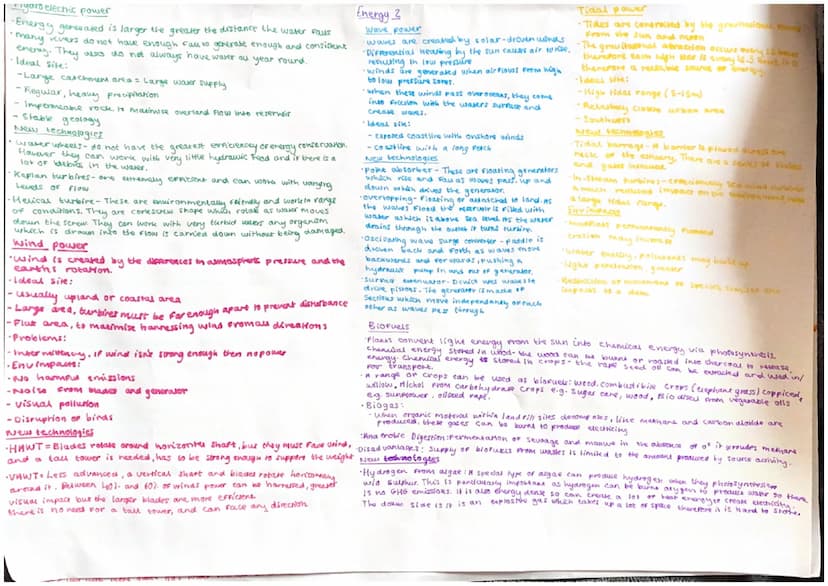 Hydroelectric power
·Energy generated is larger the greater the distance the water falls
·Many rivers do not have enough fall to generate enough and consistent
energy. They also do not always have water all year round.
·Ideal site:
-Large catchment area = Large water supply
-Regular, heavy precipitation
-Impermeable rock to maximise overland flow into reservoir
-Stable geology
New technologies
·Water wheels- do not have the greatest efficiency or energy conservation
However they can work with very little hydraulic head and if there is a
lot of debris in the water.
·Kaplan turbines- are extremely efficient and can work with varying
levels of flow
·Helical turbine- These are environmentally friendly and work in range
of conditions. They are corkscrew shape which rotate as water moves
down the screw. They can work with very turbid waters any organism
which is drawn into the flow is carried down without being damaged.
Wind power
·Wind is created by the differences in atmospheric pressure and the
earth's rotation.
·Ideal site:
-Usually upland or coastal area
-Large area, turbines must be far enough apart to prevent disturbance
-Flat area, to maximise harnessing wind from all directions
·Problems:
-Intermittency, if wind isn't strong enough then no power
·Env impacts:
-No harmful emissions
-Noise from blades and generator
-Visual pollution
-Disruption of birds
New technologies
·HAWT = Blades rotate around horizontal shaft, but they must face wind,
and a tall tower is needed, has to be strong enough to support the weight
·VAWT = Less advanced, a vertical shaft and blades rotate horizontally
around it. Between 40% and 60% of winds power can be harnessed, greater
visual impact but the larger blades are more efficient
there is no need for a tall tower, and can face any direction
Energy 2
Wave power
·Waves are created by solar-driven winds
·Differential heating by the sun causes air to rise,
resulting in low pressure
·Winds are generated when air flows from high
to low pressure zones.
·When these winds pass over oceans, they come
into friction with the waters surface and
create waves.
·Ideal site:
-Exposed coastline with onshore winds
-coastline with a long fetch
New technologies
·Point absorber - These are floating generators
which rise and fall as waves pass up and
down which drives the generator.
·Overtopping- Floating or attached to land. As
the waves flood the reservoir is filled with
water which is above sea level. As the water
drains through the outlet it turns turbine.
·Oscillating wave surge converter - paddle is
driven back and forth as waves move
backwards and forwards, pushing a
hydraulic pump in and out of generator.
·Surface attenuator- Device uses waves to
drive pistons. The generator is made of
sections which move independently of each
other as waves pass through
Tidal power
·Tides are controlled by the gravitational
from the sun and moon
·The gravitational attraction occurs every 12 hours
therefore each high tide is every 12.5 hours,
therefore a reliable source of energy.
·Ideal site:
-High tidal range (5-15m)
-Relatively close to urban area
New technologies
·Tidal barrage - A barrier is placed across the
neck of the estuary. There are a series of sluices
and gates
·In-stream turbines - effectively sea wind turbines
much reduced impact on the environment, need
a large tidal range.
Env impacts
·Mudflats permanently flooded
Erosion may increase
·Water quality, pollutants may build up
·Light penetration greater
Biofuels
·Plants convert light energy from the sun into chemical energy via photosynthesis.
Chemical energy stored in wood- the wood can be burnt or roasted into charcoal to release
energy. Chemical energy is stored in crops- the rape seed oil can be extracted and used in/
for transport.
·A range of crops can be used as biofuels: wood, combustible crops (elephant grass) coppiced
willow, Alcohol from carbohydrate crops e.g. Sugar cane, wood, Bio diesel from vegetable oils
e.g. sunflower, oilseed rape.
·Biogas:
-When organic material within landfill sites decomposes, like methane and carbon dioxide are
produced, these gases can be burnt to produce electricity.
·Anaerobic Digestion: Fermentation of sewage and manure in the absence of o² it provides methane
·Disadvantages: Supply of biofuels from wastes is limited to the amount produced by source activity.
New technologies
·Hydrogen from algae: A special type of algae can produce hydrogen when they photosynthesise
w/o sulphur. This is particularly important as hydrogen can be burnt oxygen to produce water so there
is no GHG emissions. It is also energy dense so can create a lot of heat energy to create electricity.
The down side is it is an explosive gas which takes up a lot of space therefore it is hard to store.